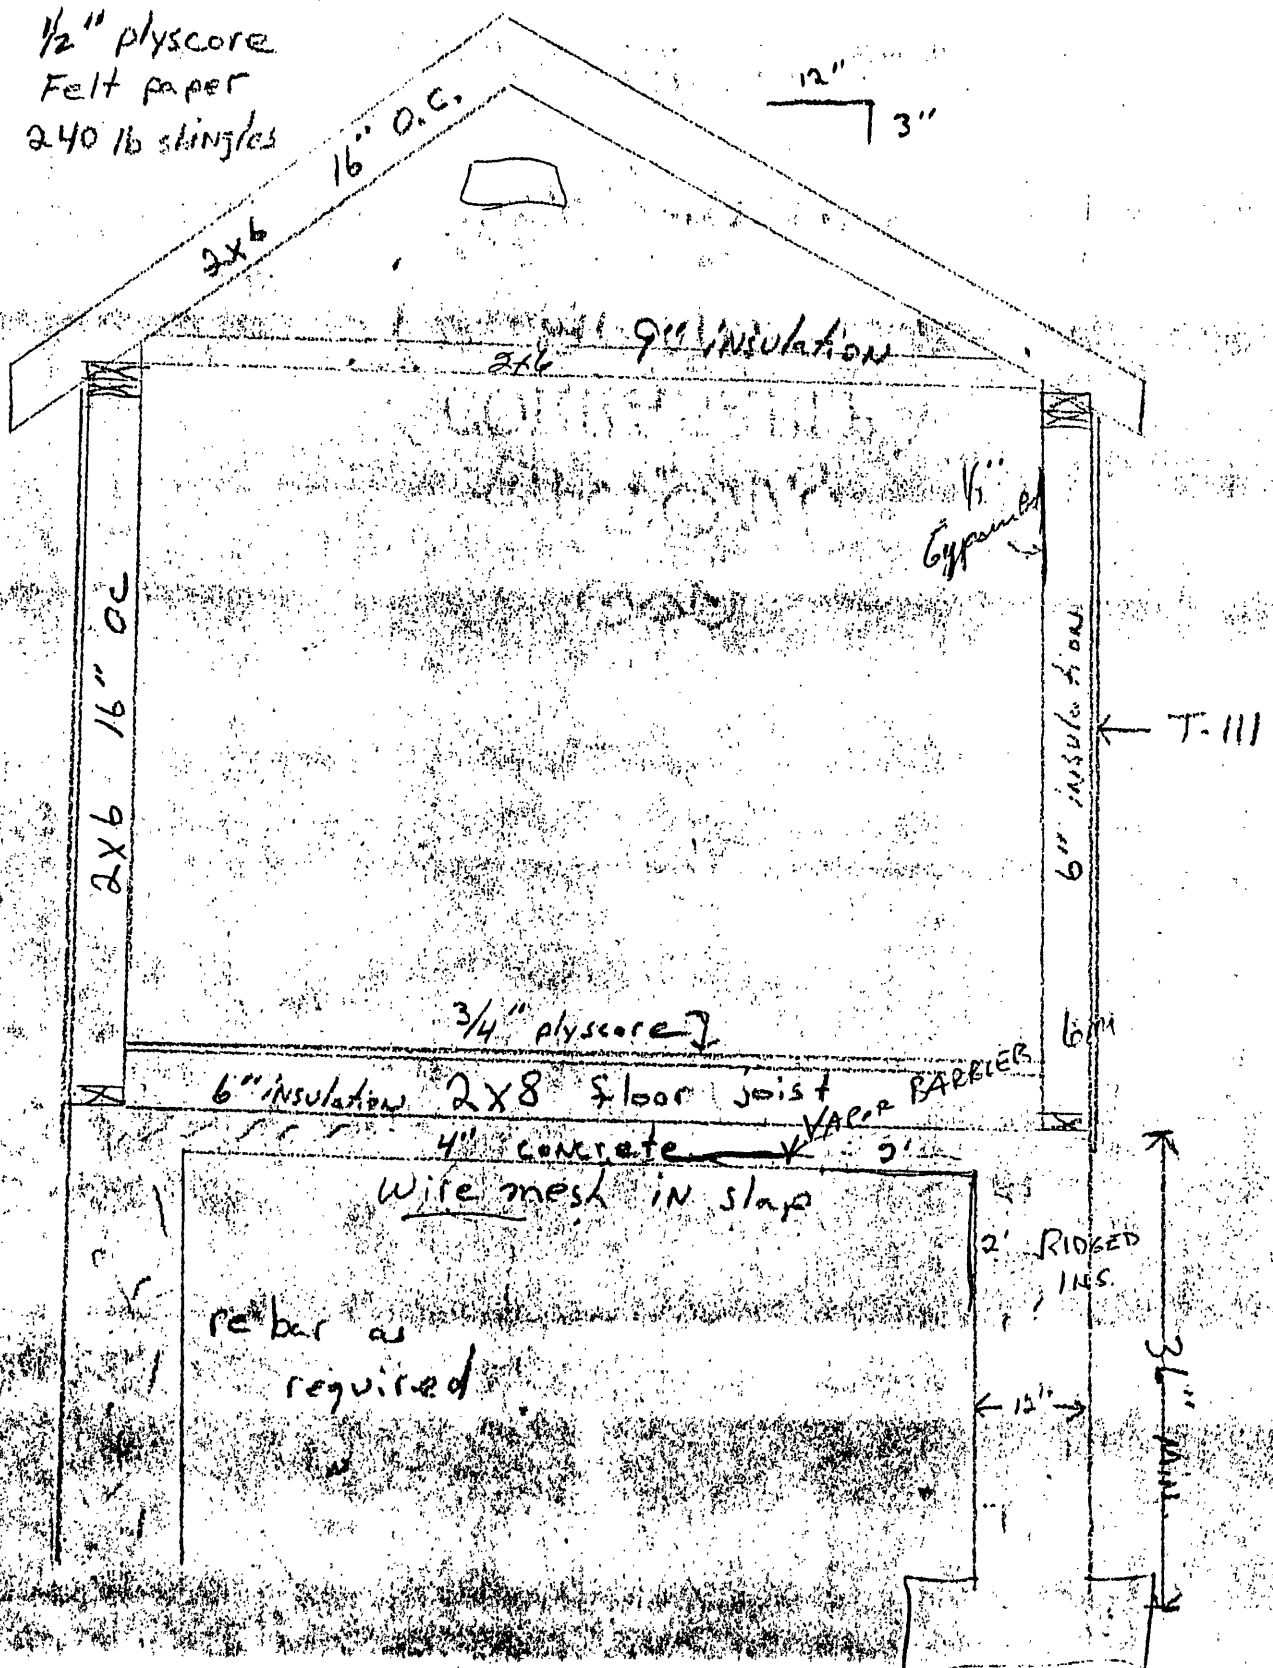 1/2" plyscore
Felt paper
240 lb shingles
12"
3"
2x6 16" O.C.
9" insulation
2x6
Gypsum
2x6 16" OC
6" insulation
T-111
3/4" plyscore
6"insulation 2x8 floor joist
VAPOR BARRIER
4" concrete 2'
Wire mesh in slap
2' RIDGED
INS.
rebar as
required
12"
36" Min.